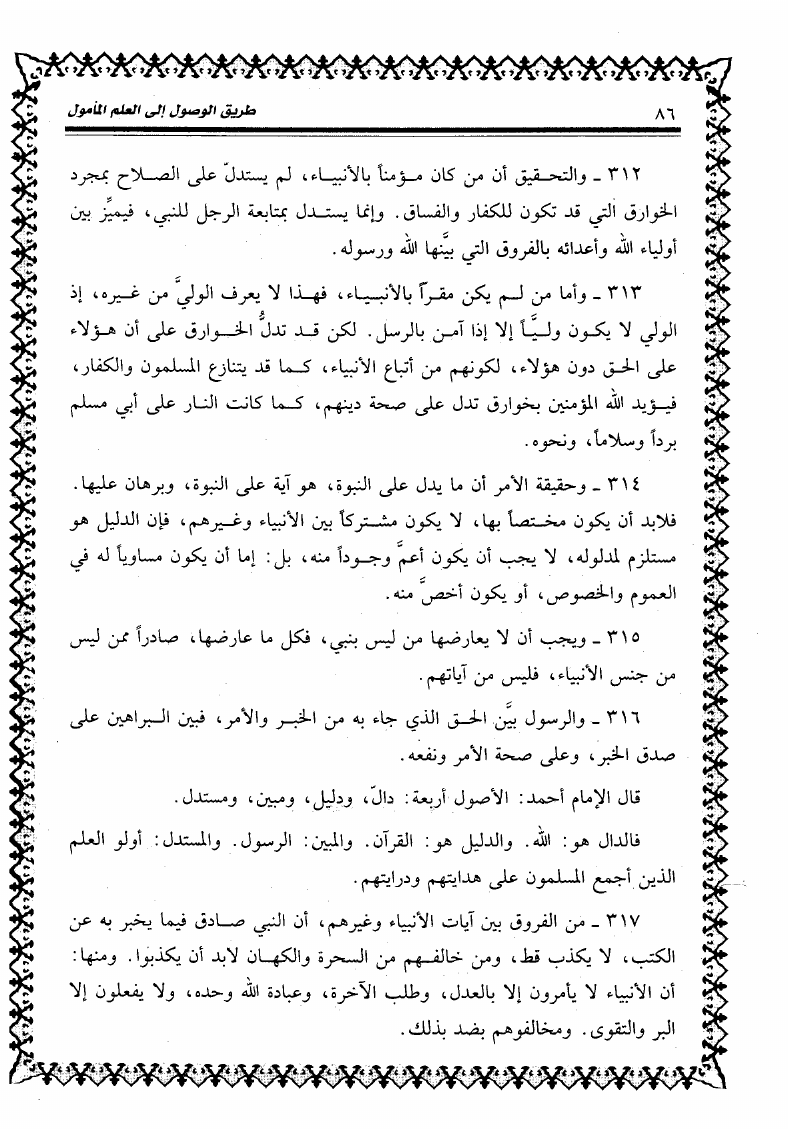 ٨٦
طريق الوصول إلى العلم المأمول
٣١٢ ـ والتحقيق أن من كان مؤمناً بالأنبياء، لم يستدلّ على الصلاح بمجرد
الخوارق التي قد تكون للكفار والفساق. وإنما يستدل بمتابعة الرجل للنبي، فيميِّز بين
أولياء الله وأعدائه بالفروق التي بيَّنها الله ورسوله.
٣١٣ ـ وأما من لم يكن مقراً بالأنبياء، فهذا لا يعرف الوليَّ من غيره، إذ
الولي لا يكون وليَّاً إلا إذا آمن بالرسل. لكن قد تدلُّ الخوارق على أن هؤلاء
على الحق دون هؤلاء، لكونهم من أتباع الأنبياء، كما قد يتنازع المسلمون والكفار،
فيؤيد الله المؤمنين بخوارق تدل على صحة دينهم، كما كانت النار على أبي مسلم
برداً وسلاماً، ونحوه.
٣١٤ ـ وحقيقة الأمر أن ما يدل على النبوة، هو آية على النبوة، وبرهان عليها.
فلابد أن يكون مختصاً بها، لا يكون مشتركاً بين الأنبياء وغيرهم، فإن الدليل هو
مستلزم لمدلوله، لا يجب أن يكون أعمَّ وجوداً منه، بل: إما أن يكون مساوياً له في
العموم والخصوص، أو يكون أخصَّ منه.
٣١٥ ـ ويجب أن لا يعارضها من ليس بنبي، فكل ما عارضها، صادراً ممن ليس
من جنس الأنبياء، فليس من آياتهم.
٣١٦ ـ والرسول بيَّن الحق الذي جاء به من الخبر والأمر، فبين البراهين على
صدق الخبر، وعلى صحة الأمر ونفعه.
قال الإمام أحمد: الأصول أربعة: دالّ، ودليل، ومبين، ومستدل.
فالدال هو: الله. والدليل هو: القرآن. والمبين: الرسول. والمستدل: أولو العلم
الذين أجمع المسلمون على هدايتهم ودرايتهم.
٣١٧ ـ من الفروق بين آيات الأنبياء وغيرهم، أن النبي صادق فيما يخبر به عن
الكتب، لا يكذب قط، ومن خالفهم من السحرة والكهان لابد أن يكذبوا. ومنها:
أن الأنبياء لا يأمرون إلا بالعدل، وطلب الآخرة، وعبادة الله وحده، ولا يفعلون إلا
البر والتقوى. ومخالفوهم بضد بذلك.